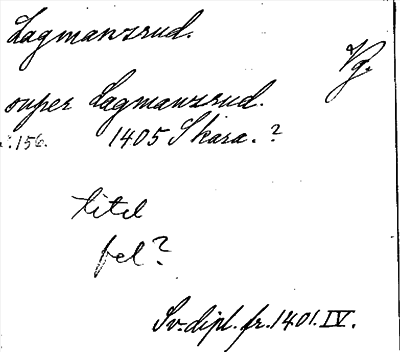 Lagmanzrud.
Vg.
super Lagmanzrud.
s. 156. 1405 Skara. ?
titel
fel?
Sv. dipl. fr. 1401. IV.